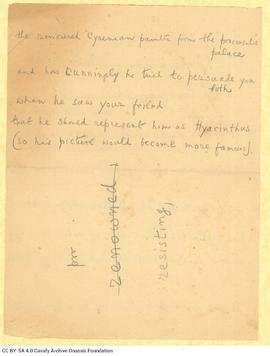 the renowned Cyrenian painter from the proconsul's
palace
and how cunningly he tried to persuade you
both
when he saw your friend
that he should represent him as Hyacinthus
(so his picture would become more famous).
per
renowned
resisting,
CC BY-SA 4.0 Cavafy Archive Onassis Foundation